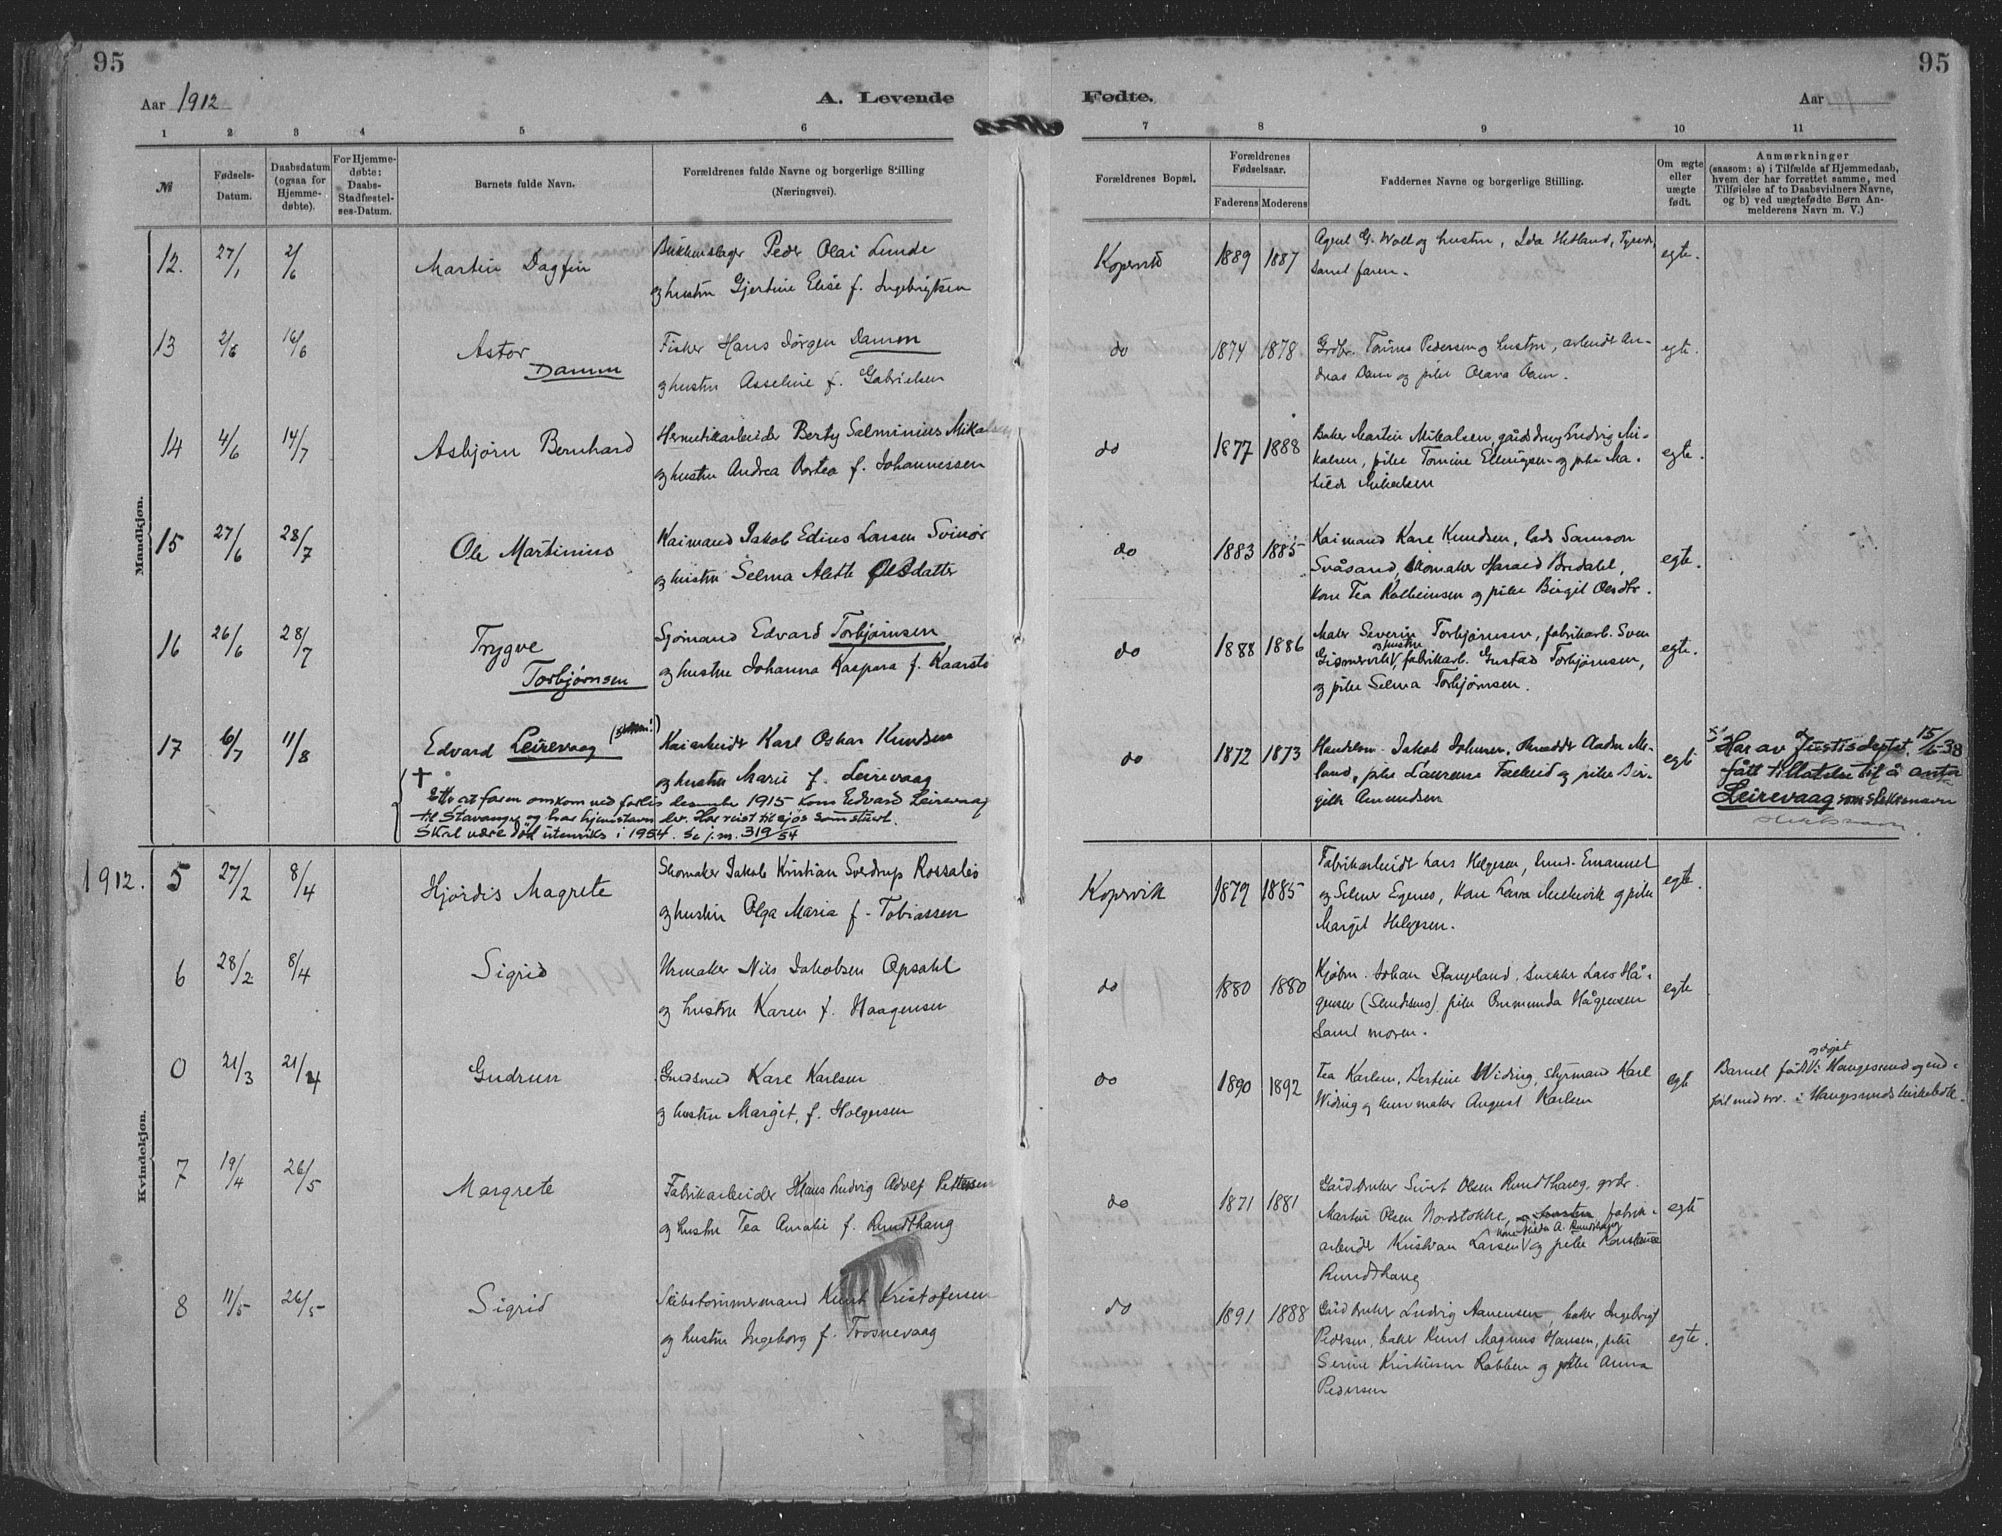 95
95
Aar 1912
A. Levende
Fødte.
Aar
1 2 3 4 5 6 7 8 9 10 11
№
Fødsels-
Datum.
Daabsdatum
(ogsaa for
Hjemme-
døbte).
For Hjemme-
døbte:
Daabs-
Stadfæstel-
ses-Datum.
Barnets fulde Navn.
Forældrenes fulde Navne og borgerlige Stilling
(Næringsvei).
Forældrenes Bopæl.
Forældrenes
Fødselsaar.
Faderens Moderens
Faddernes Navne og borgerlige Stilling.
Om ægte
eller
uægte
født.
Anmærkninger
(saasom: a) i Tilfælde af Hjemmedaab,
hvem der har forrettet samme, med
Tilføielse af to Daabsvidners Navne,
og b) ved uægtefødte Børn An-
melderens Navn m. V.)
Mandkjøn.
12. 27/1 2/6 Martin Dagfin
Peder Olai Lunde
og hustru Gjertine Elise f. Ingebrigtsen
Kopervik 1889 1887
Agent G. Wold og hustru, Ida Hetland,
samt faren.
egte.
13 2/6 16/6 Astor
Damm
Fisker Hans Jørgen Damm
og hustru Asseline f. Gabrielsen
do 1874 1878
Grdbr. Tønnes Pedersen og hustru, arbeidr An-
dreas Dam og pike Olava Dam.
egte.
14 4/6 14/7 Asbjørn Bernhard
Hermetikarbeider Berty Salminius Mikalsen
og hustru Andrea Dortea f. Johannessen
do 1877 1888
Baker Martin Mikalsen, gårdbrug Ludvig Mi-
kalsen, pike Tomine Ellingsen og pike Ma-
tilde Mikalsen
egte.
15 27/6 28/7 Ole Martinius
Kaimand Jakob Edius Larsen Svinør
og hustru Selma Alette Olsdatter
do 1883 1885
Kaimand Karl Knudsen, lods Samson
Svåsand, skomaker Harald Bredahl,
kone Tea Kolbeinsen og pike Birgit Olsdtr.
egte.
16 26/6 28/7 Trygve
Torbjørnsen
Sjømand Edvard Torbjørnsen
og hustru Johanna Kaspara f. Kaarstø
do 1888 1886
Maler Severin Torbjørnsen, fabrikarb. Sven
Gismervik og hustru, fabrikarb. Gustav Torbjørnsen,
og pike Selma Torbjørnsen.
egte.
17 6/7 11/8 Edvard Leirevaag
Kaiarbeidr Karl Oskar Knudsen
og hustru Marie f. Leirevaag
do 1872 1873
Handelsm. Jakob Johnsen, Anders Me-
land, pike Laurense Fæheid og pike Bir-
gitte Amundsen
egte
Har av Justisdeptet 15/6-38
fått tillatelse til å anta
Leirevaag som slektsnavn
† Etter at faren omkom ved forlis desember 1915 kom Edvard Leirevaag
til Stavanger og har hjemstavn der. Har reist til sjøs som stuert.
Skal være død utenriks i 1954. Se j.nr. 319/54
Kvindekjøn.
1912. 5 27/2 8/4 Hjørdis Magrete
Skomaker Jakob Kristian Sverdrup Rossabø
og hustru Olga Maria f. Tobiassen
Kopervik 1879 1885
Fabrikarbeidr Lars Helgesen, Emanuel
og Selmer Egenes, kone Lava Mælkevik og pike
Margit Helgesen.
egte.
6 28/2 8/4 Sigrid
Urmaker Nils Jakobsen Opsahl
og hustru Karen f. Haagensen
do 1880 1880
Kjøbm. Johan Stangeland, snekker Lars Hå-
gensen pike Ommunda Hågensen
samt moren.
egte
0 21/3 21/4 Gudrun
Gudsmed Karl Karlsen
og hustru Margit f. Holgersen
do 1890 1892
Tea Karlsen, Bertine Widing, styrman Karl
Widing og bunmaker August Karlsen
egte
Barnet født og døpt i Haugesund og ind-
ført med nr. i Haugesunds kirkebok.
7 19/4 26/5 Margrete
Fabrikarbeider Klaus Ludvig Adolf Pettersen
og hustru Tea Amalie f. Rundthaug
do 1871 1881
Gårdbruker Sivert Olsen Rundthaug, grbr.
Martin Olsen Nordstokke, og hustru, fabrik-
arbeider Kristian Larsen, kone Hilda A. Rundthaug og pike Konstanse
Rundthaug
egte
8 11/5 26/5 Sigrid
Skibstømmermand Knut Kristofersen
og hustru Ingeborg f. Trosnevaag
do 1891 1888
Gårdbruker Ludvig Aanensen, baker Ingebrigt
Pedersen, baker Knut Magnus Hansen, pike
Serine Kristinsen Rabben og pike Anna
Pedersen
egte.